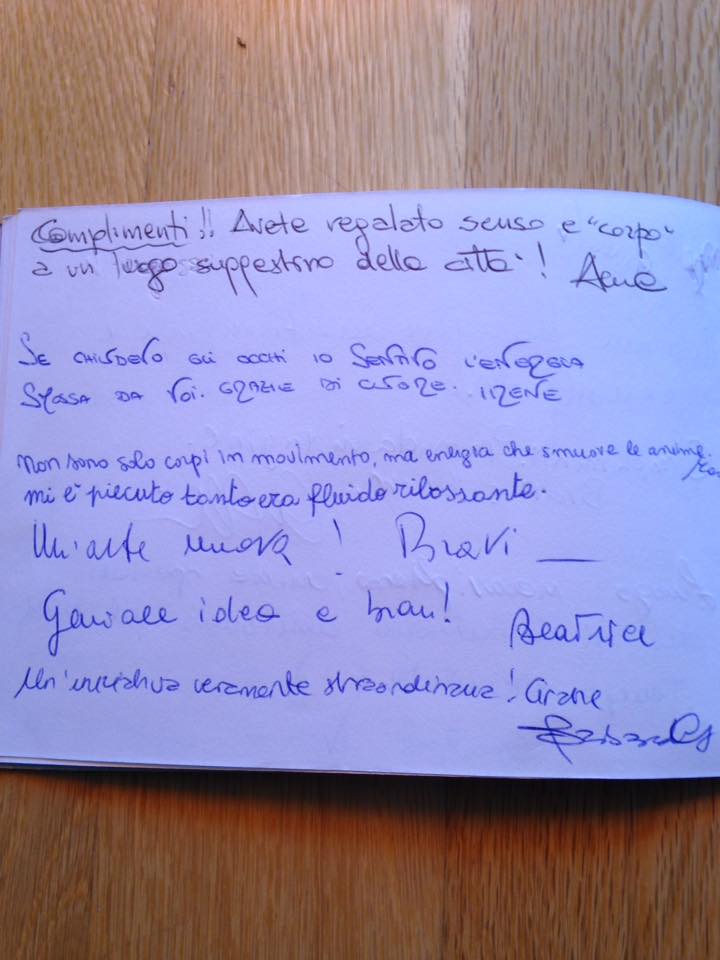 Complimenti!! Avete regalato senso e "corpo"
a un luogo suggestivo della città!
SE CHIUDEVO GLI OCCHI IO SENTIVO L'ENERGIA
MOSSA DA VOI. GRAZIE DI CUORE. IRENE
Non sono solo corpi in movimento, ma energia che smuove le anime.
mi è piaciuto tanto era fluido rilassante.
Un'arte nuova! Bravi
Geniale idea e bravi! Beatrice
Un'iniziativa veramente straordinaria! Grazie